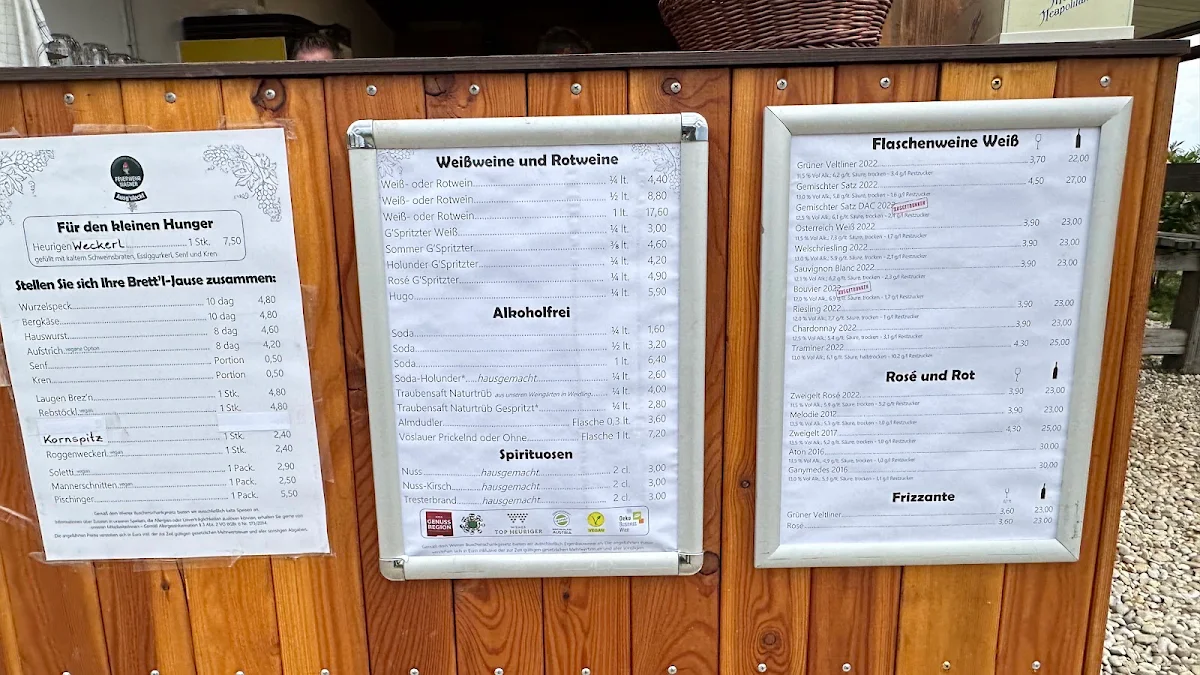 Neapolitaner
FEUERWEHR
WAGNER
Für den kleinen Hunger
Heurigen Weckerl 1 Stk. 7,50
gefüllt mit kaltem Schweinsbraten, Essiggurkerl, Senf und Kren
Stellen Sie sich Ihre Brett'l-Jause zusammen:
Wurzelspeck 10 dag 4,80
Bergkäse 10 dag 4,80
Hauswurst 8 dag 4,60
Aufstrich vegane Option 8 dag 4,20
Senf Portion 0,50
Kren Portion 0,50
Laugen Brez'n 1 Stk. 4,80
Rebstöckl vegan 1 Stk. 4,80
Kornspitz 1 Stk. 2,40
Roggenweckerl vegan 1 Stk. 2,40
Soletti vegan 1 Pack. 2,90
Mannerschnitten vegan 1 Pack. 2,50
Pischinger 1 Pack. 5,50
Gemäß dem Wiener Buschenschankgesetz bieten wir ausschließlich kalte Speisen an.
Weißweine und Rotweine
Weiß- oder Rotwein ¼ lt. 4,40
Weiß- oder Rotwein ½ lt. 8,80
Weiß- oder Rotwein 1 lt. 17,60
G'Spritzter Weiß ¼ lt. 3,00
Sommer G'Spritzter 4,60
Holunder G'Spritzter ¼ lt. 4,20
Rosé G'Spritzter ¼ lt. 4,90
Hugo ¼ lt. 5,90
Alkoholfrei
Soda ¼ lt. 1,60
Soda ½ lt. 3,20
Soda 1 lt. 6,40
Soda-Holunder* hausgemacht ¼ lt. 2,60
Traubensaft Naturtrüb aus unserem Weingarten in Weidling ¼ lt. 4,00
Traubensaft Naturtrüb Gespritzt* ¼ lt. 2,80
Almdudler Flasche 0,3 lt. 3,60
Vöslauer Prickelnd oder Ohne Flasche 1 lt. 7,20
Spirituosen
Nuss hausgemacht 2 cl. 3,00
Nuss-Kirsch hausgemacht 2 cl. 3,00
Tresterbrand hausgemacht 2 cl. 3,00
GENUSS
REGION
WIENER
TOP HEURIGER
VEGAN
Flaschenweine Weiß
Grüner Veltiner 2022 3,70 22,00
11,5 % Vol Alk.; 6,2 g/lt. Säure, trocken - 3,4 g/lt Restzucker
Gemischter Satz 2022 4,50 27,00
Gemischter Satz DAC 2022 AUSGETRUNKEN
Österreich Weiß 2022 3,90 23,00
Welschriesling 2022 3,90 23,00
Sauvignon Blanc 2022 3,90 23,00
Bouvier 2022 AUSGETRUNKEN
Riesling 2022 3,90 23,00
Chardonnay 2022 3,90 23,00
Traminer 2022 4,30 25,00
Rosé und Rot
Zweigelt Rosé 2022 3,90 23,00
Melodie 2012 3,90 23,00
Zweigelt 2017 4,30 25,00
Aton 2016 30,00
Ganymedes 2016 30,00
Frizzante
Grüner Veltliner 3,60 23,00
Rosé 3,60 23,00